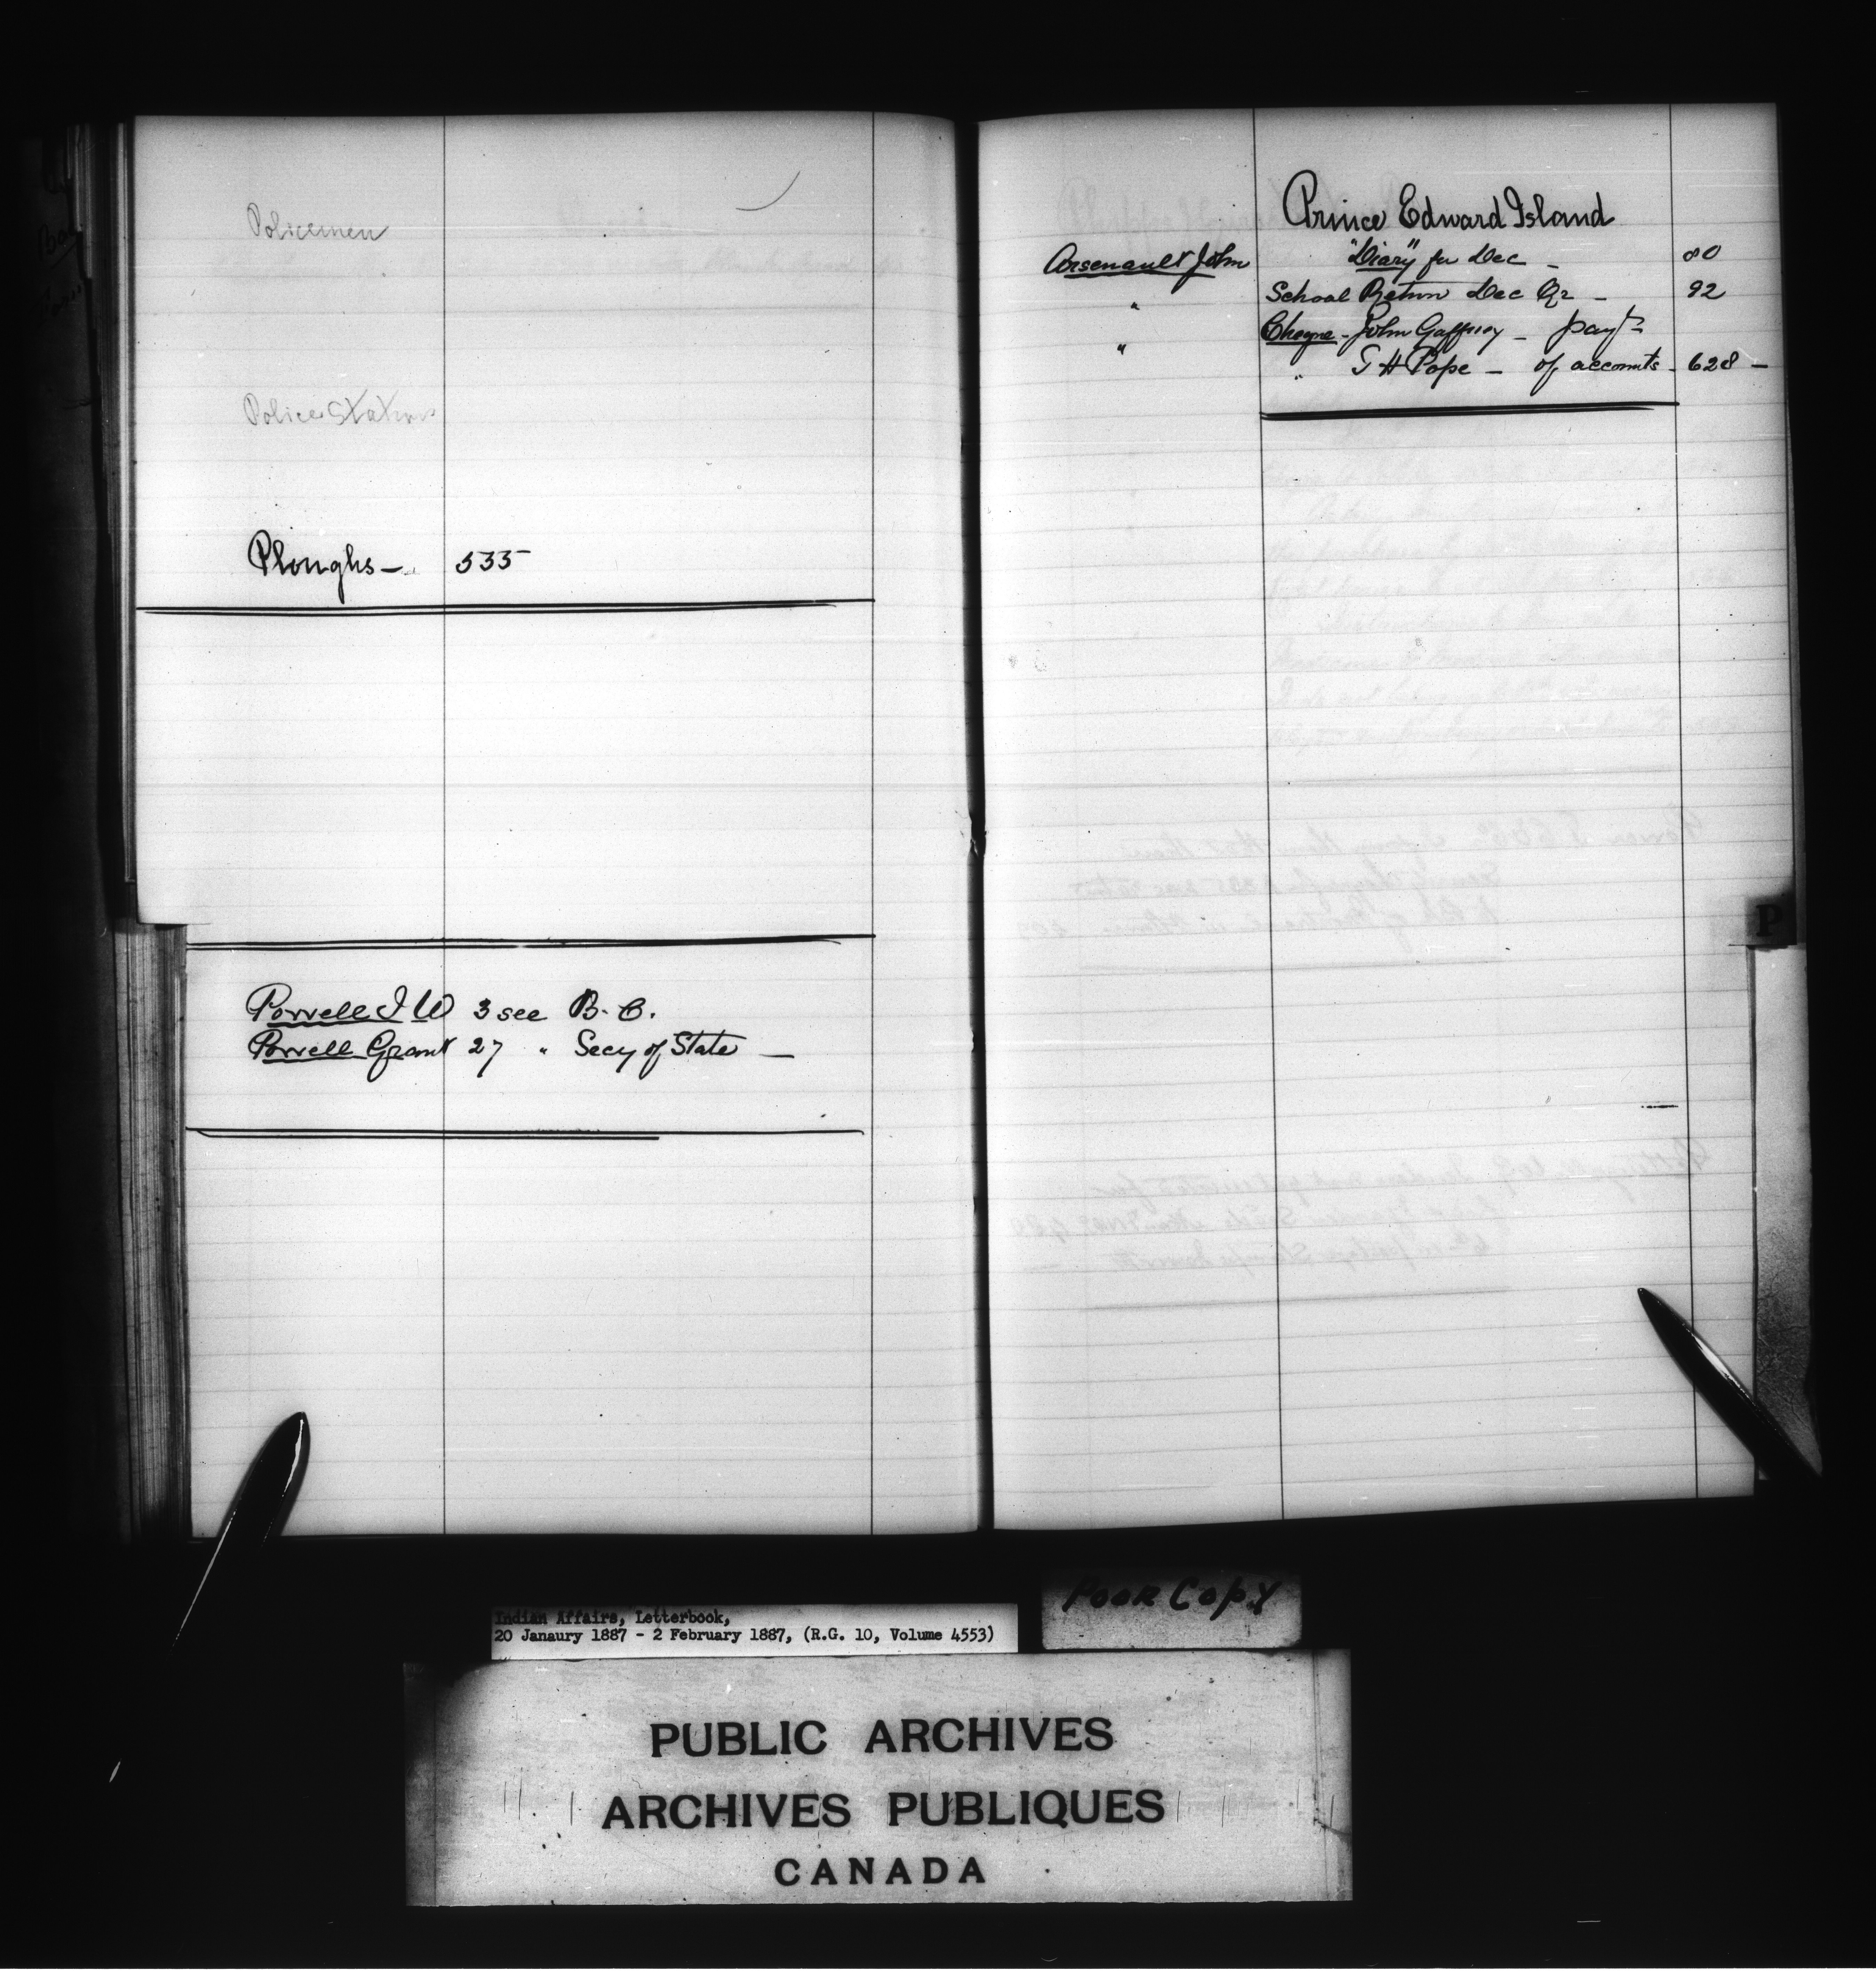 Policemen
Police Stations
Ploughs — 535
Powell I W 3 see B. C.
Powell Grant 27 " Secy of State —
Prince Edward Island
Arsenault John "Diary" for Dec — 80
" School Return Dec Qr — 92
" Cheque - John Gaffney — payt
" T H Pope — of accounts - 628 —
P
Indian Affairs, Letterbook,
20 Janaury 1887 - 2 February 1887, (R.G. 10, Volume 4553)
Poor Copy
PUBLIC ARCHIVES
ARCHIVES PUBLIQUES
CANADA